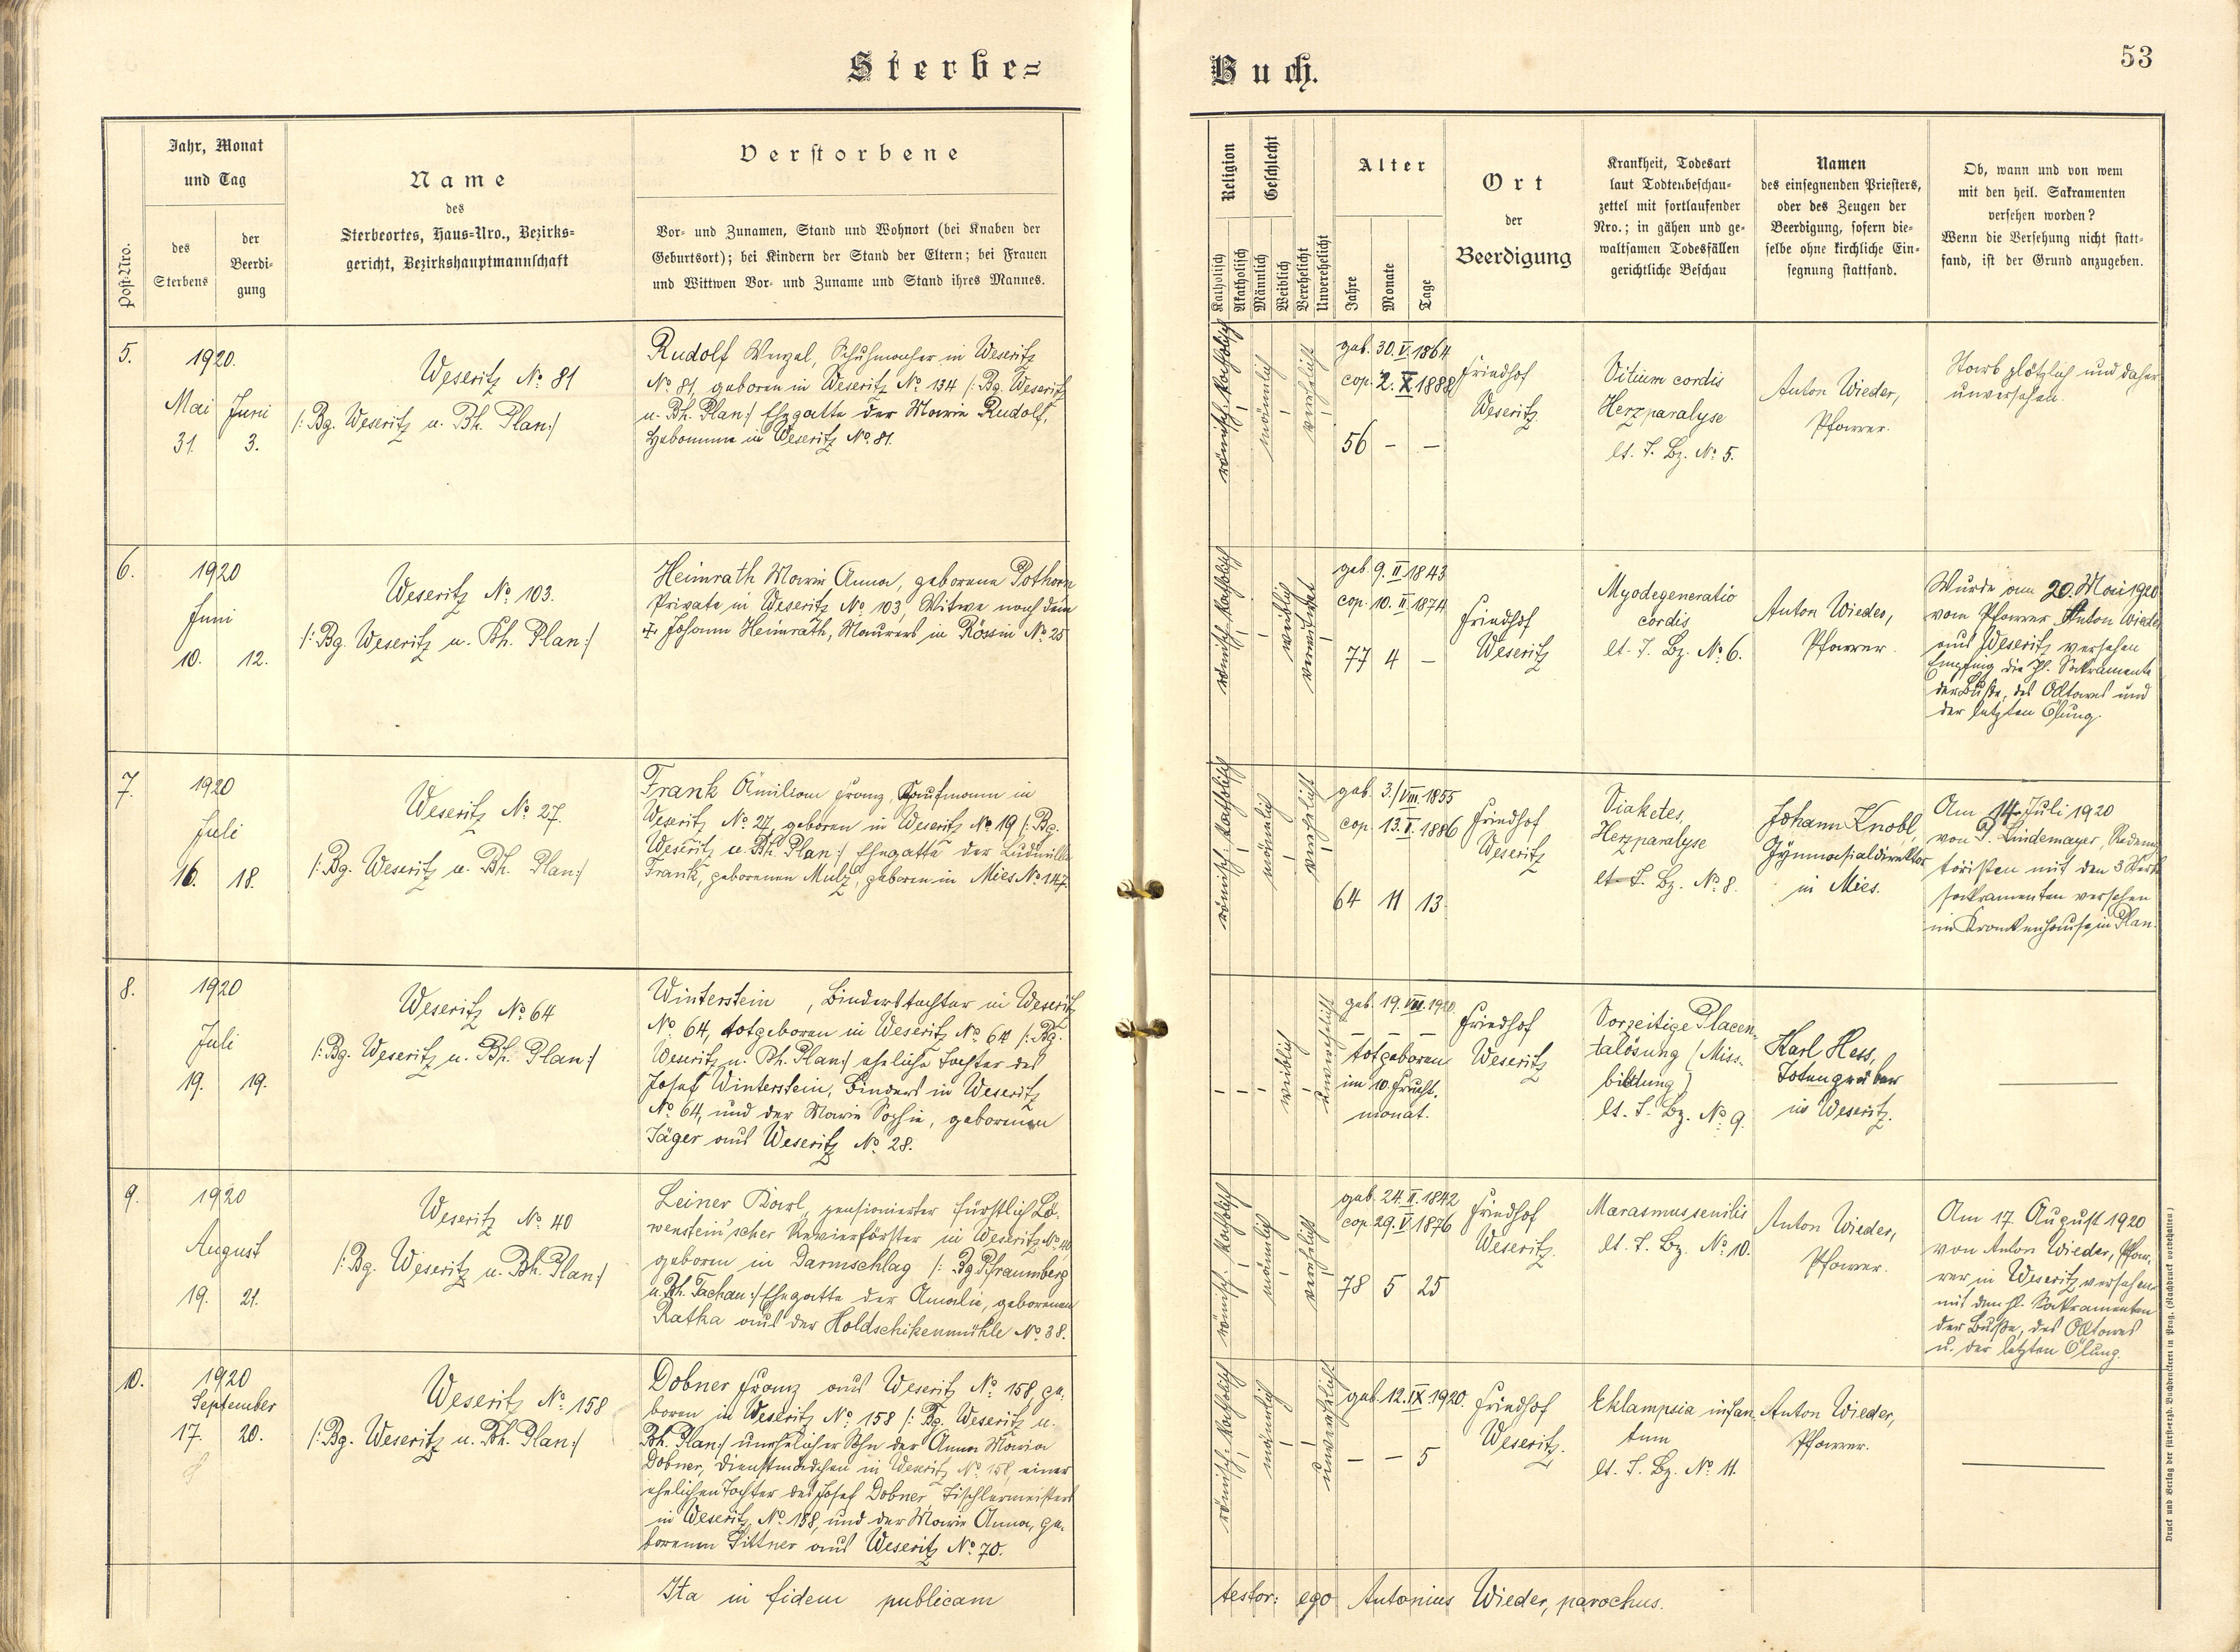 Sterbe=
Buch.
53
Post-Nro.
Jahr, Monat
und Tag
des
Sterbens
der
Beerdi-
gung
Name
des
Sterbeortes, Haus-Nro., Bezirks-
gericht, Bezirkshauptmannschaft
Verstorbene
Vor- und Zunamen, Stand und Wohnort (bei Knaben der
Geburtsort); bei Kindern der Stand der Eltern; bei Frauen
und Wittwen Vor- und Zuname und Stand ihres Mannes.
Religion
Katholisch
Akatholisch
Geschlecht
Männlich
Weiblich
Verehelicht
Unverehelicht
Alter
Jahre
Monate
Tage
Ort
der
Beerdigung
Krankheit, Todesart
laut Todtenbeschau-
zettel mit fortlaufender
Nro.; in gähen und ge-
waltsamen Todesfällen
gerichtliche Beschau
Namen
des einsegnenden Priesters,
oder des Zeugen der
Beerdigung, sofern die-
selbe ohne kirchliche Ein-
segnung stattfand.
Ob, wann und von wem
mit den heil. Sakramenten
versehen worden?
Wenn die Versehung nicht statt-
fand, ist der Grund anzugeben.
5.
1920.
Mai Juni
31. 3.
Weseritz No 81
/: Bg. Weseritz u. Bh. Plan :/
Rudolf Wenzel, Schuhmacher in Weseritz
No 81, geboren in Weseritz No 134 /: Bg. Weseritz
u. Bh. Plan :/ Ehegatte der Marie Rudolf,
Hebamme in Weseritz No 81.
römisch-katholisch
männlich
verehelicht
geb. 30. V. 1864
cop. 2. X. 1888
56 — —
Friedhof
Weseritz.
Vitium cordis
Herzparalyse
lt. T. Bz. No 5.
Anton Wieder,
Pfarrer.
Starb plötzlich und daher
unversehen.
6.
1920
Juni
10. 12.
Weseritz No 103.
/: Bg. Weseritz u. Bh. Plan :/
Heimrath Marie Anna, geborene Pothorn
Private in Weseritz No 103, Witwe nach dem
+ Johann Heimrath, Maurers in Rössin No 25
römisch-katholisch
weiblich
verwitwet
geb. 9. II. 1843
cop. 10. II. 1874
77 4 —
Friedhof
Weseritz
Myodegeneratio
cordis
lt. T. Bz. No 6.
Anton Wieder,
Pfarrer.
Wurde am 20. Mai 1920
vom Pfarrer Anton Wieder
aus Weseritz versehen
Empfing die hl. Sakramente
der Buße, des Altares und
der letzten Ölung.
7.
1920
Juli
16. 18.
Weseritz No 27.
/: Bg. Weseritz u. Bh. Plan :/
Frank Ämilian Franz, Kaufmann in
Weseritz No 27, geboren in Weseritz No 19 /: Bg.
Weseritz u. Bh. Plan :/ Ehegatte der Ludmilla
Frank, geborenen Mulz, geboren in Mies No 147.
römisch-katholisch
männlich
verehelicht
geb. 3./VIII. 1855
cop. 13. V. 1886
64 11 13
Friedhof
Weseritz
Diabetes,
Herzparalyse
lt. T. Bz. No 8.
Johann Knobl,
Gymnasialdirektor
in Mies.
Am 14. Juli 1920
von P. Lindemayer, Redemp
toristen mit den 3 Sterbe
sakramenten versehen
im Krankenhause in Plan.
8.
1920
Juli
19. 19.
Weseritz No 64
/: Bg. Weseritz u. Bh. Plan :/
Winterstein , Binderstochter in Weseritz
No 64, totgeboren in Weseritz No 64 /: Bg.
Weseritz u. Bh. Plan :/ eheliche Tochter des
Josef Winterstein, Binders in Weseritz
No 64, und der Marie Sophie, geborenen
Jäger aus Weseritz No 28.
weiblich
unverehelicht
geb. 19. VII. 1920.
— — —
totgeboren
im 10. Frucht.
monat.
Friedhof
Weseritz
Vorzeitige Placen-
talösung (Miss-
bildung)
lt. T. Bz. No 9.
Karl Hess,
Totengräber
in Weseritz.
9.
1920
August
19. 21.
Weseritz No 40
/: Bg. Weseritz u. Bh. Plan :/
Leiner Karl, pensionierter fürstlich Lö-
wenstein'scher Revierförster in Weseritz No 40
geboren in Darmschlag /: Bg Pfraumberg
u. Bh. Tachau :/ Ehegatte der Amalie, geborenen
Ratka aus der Holdschikenmühle No 38.
römisch-katholisch
männlich
verehelicht
geb. 24. II. 1842
cop. 29. V. 1876
78 5 25
Friedhof
Weseritz.
Marasmus senilis
lt. T. Bz. No 10.
Anton Wieder,
Pfarrer.
Am 17. August 1920
von Anton Wieder, Pfar-
rer in Weseritz versehen
mit den hl. Sakramenten
der Buße, des Altares
u. der letzten Ölung.
10.
1920
September
17. 20.
Weseritz No 158
/: Bg. Weseritz u. Bh. Plan :/
Dobner Franz aus Weseritz No 158, ge-
boren in Weseritz No 158 /: Bg. Weseritz u.
Bh. Plan :/ unehelicher Sohn der Anna Maria
Dobner, Dienstmädchen in Weseritz No 158, einer
ehelichen Tochter des Josef Dobner, Tischlermeisters
in Weseritz No 158, und der Marie Anna, ge-
borenen Littner aus Weseritz No 70.
römisch-katholisch
männlich
unverehelicht
geb. 12. IX. 1920.
— — 5
Friedhof
Weseritz.
Eklampsia infan-
tum
lt. T. Bz. No 11.
Anton Wieder,
Pfarrer.
Ita in fidem publicam
testor: ego Antonius Wieder, parochus.
Druck und Verlag der fürsterzb. Buchdruckerei in Prag. (Nachdruck vorbehalten)